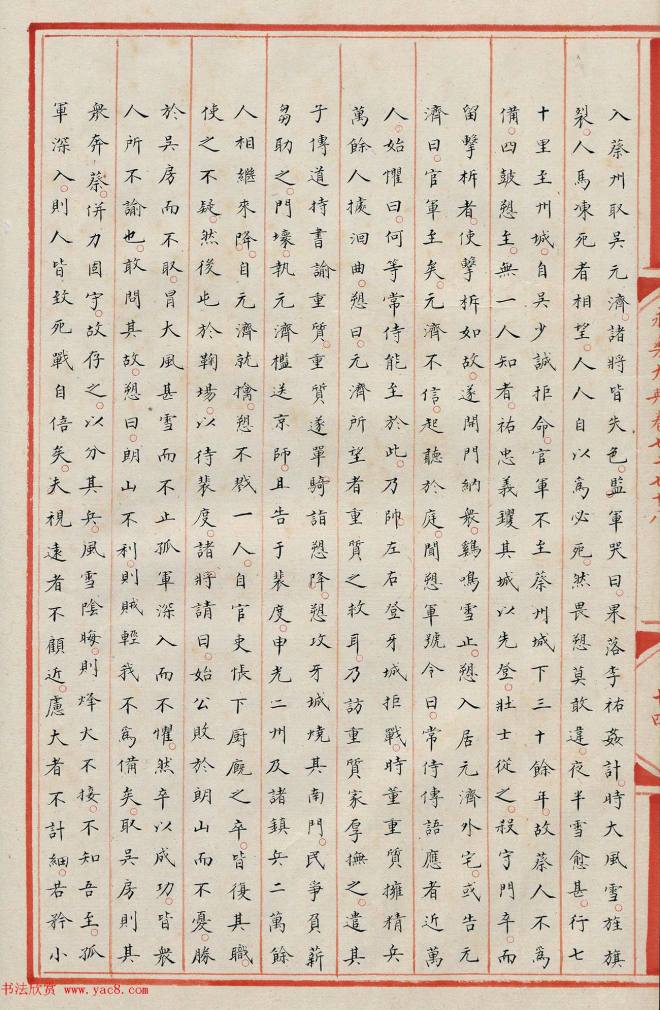 入蔡州取吳元濟。諸將皆失色。監軍哭曰。果落李祐姦計。時大風雪。旌旗
裂。人馬凍死者相望。人人自以為必死。然畏愬莫敢違。夜半雪愈甚。行七
十里至州城。自吳少誠拒命。官軍不至蔡州城下三十餘年。故蔡人不為
備。四鼓愬至。無一人知者。祐忠義钁其城以先登。壯士從之。殺守門卒。而
留擊柝者。使擊柝如故。遂開門納衆。鷄鳴雪止。愬入居元濟外宅。或告元
濟曰。官軍至矣。元濟不信。起聽於庭。聞愬軍號令曰。常侍傳語。應者近萬
人。始懼曰。何等常侍能至於此。乃帥左右登牙城拒戰。時董重質擁精兵
萬餘人據洄曲。愬曰。元濟所望者重質之救耳。乃訪重質家厚撫之。遣其
子傳道持書諭重質。重質遂單騎詣愬降。愬攻牙城燒其南門。民爭負薪
芻助之。門壞。執元濟檻送京師。且告于裴度。申光二州及諸鎮兵二萬餘
人相繼來降。自元濟就擒。愬不戮一人。自官吏帳下廚廄之卒。皆復其職。
使之不疑。然後屯於鞠場。以待裴度。諸將請曰。始公敗於朗山而不憂。勝
於吳房而不取。冒大風甚雪而不止。孤軍深入而不懼。然卒以成功。皆衆
人所不諭也。敢問其故。愬曰。朗山不利。則賊輕我不為備矣。取吳房則其
衆奔蔡。併力固守。故存之。以分其兵。風雪陰晦。則烽火不接。不知吾至。孤
軍深入。則人皆致死戰自倍矣。夫視遠者不顧近。慮大者不計細。若矜小
书法欣赏 www.yac8.com